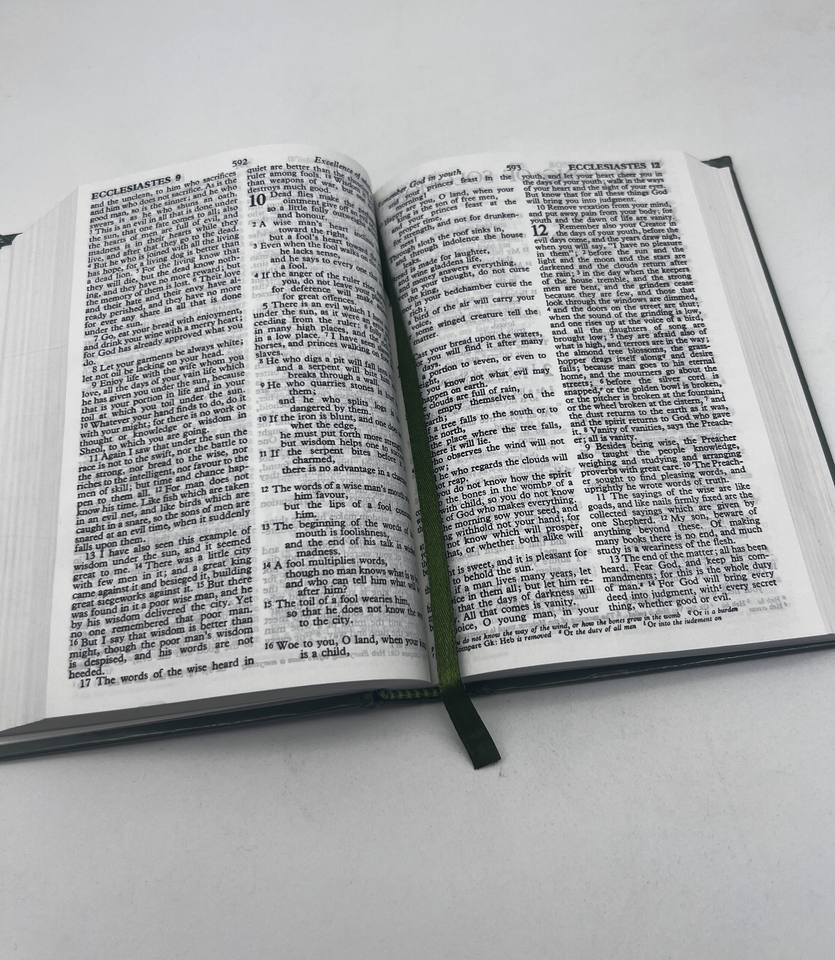 ECCLESIASTES 9
592
Excellence of
and the unclean, to him who sacrifices
and him who does not sacrifice. As is the
good man, so is the sinner; and he who
swears is as he who shuns an oath.
3 This is an evil in all that is done under
the sun, that one fate comes to all; also
the hearts of men are full of evil, and
madness is in their hearts while they
live, and after that they go to the dead.
4 But he who is joined with all the living
has hope, for a living dog is better than
a dead lion. 5 For the living know that
they will die, but the dead know noth-
ing, and they have no more reward; but
the memory of them is lost. 6 Their love
and their hate and their envy have al-
ready perished, and they have no more
for ever any share in all that is done
under the sun.
7 Go, eat your bread with enjoyment,
and drink your wine with a merry heart;
for God has already approved what you
do.
8 Let your garments be always white;
let not oil be lacking on your head.
9 Enjoy life with the wife whom you
love, all the days of your vain life which
he has given you under the sun, because
that is your portion in life and in your
toil at which you toil under the sun.
10 Whatever your hand finds to do, do it
with your might; for there is no work or
thought or knowledge or wisdom in
Sheol, to which you are going.
11 Again I saw that under the sun the
race is not to the swift, nor the battle to
the strong, nor bread to the wise, nor
riches to the intelligent, nor favour to the
men of skill; but time and chance hap-
pen to them all. 12 For man does not
know his time. Like fish which are taken
in an evil net, and like birds which are
caught in a snare, so the sons of men are
snared at an evil time, when it suddenly
falls upon them.
13 I have also seen this example of
wisdom under the sun, and it seemed
great to me. 14 There was a little city
with few men in it; and a great king
came against it and besieged it, building
great siegeworks against it. 15 But there
was found in it a poor wise man, and he
by his wisdom delivered the city. Yet
no one remembered that poor man.
16 But I say that wisdom is better than
might, though the poor man's wisdom
is despised, and his words are not
heeded.
17 The words of the wise heard in
quiet are better than the
ruler among fools. 18 Wisdom
than weapons of war, but
destroys much good.
10 Dead flies make the
ointment give off
so a little folly outweighs
and honour.
2 A wise man's heart
toward the right,
but a fool's heart
3 Even when the fool walks
he lacks sense,
and he says to every one
a fool.
4 If the anger of the ruler
you, do not leave your
for deference will make
for great offences.
5 There is an evil which I
under the sun, as it were
ceeding from the ruler: 6
in many high places, and
in a low place. 7 I have seen
horses, and princes walking on
slaves.
8 He who digs a pit will fall
and a serpent will bite
breaks through a wall.
9 He who quarries stones
them,
and he who splits logs
dangered by them.
10 If the iron is blunt, and one does
whet the edge,
he must put forth more
but wisdom helps one to
11 If the serpent bites
charmed,
there is no advantage in a
12 The words of a wise man's mouth
him favour,
but the lips of a fool
him.
13 The beginning of the words of
mouth is foolishness,
and the end of his talk is
madness.
14 A fool multiplies words,
though no man knows what is
and who can tell him what
after him?
15 The toil of a fool wearies him,
so that he does not know the
to the city.
16 Woe to you, O land, when your
is a child,
God in youth
593
ECCLESIASTES 12
your princes feast in the
you, O land, when your
king is the son of free men,
your princes feast at the
proper time,
strength, and not for drunken-
sloth the roof sinks in,
through indolence the house
is made for laughter,
wine gladdens life,
money answers everything.
in your thought, do not curse
in your bedchamber curse the
bird of the air will carry your
voice,
winged creature tell the
matter.
your bread upon the waters,
you will find it after many
portion to seven, or even to
know not what evil may
happen on earth.
clouds are full of rain,
empty themselves on the
a tree falls to the south or to
the north,
the place where the tree falls,
there it will lie.
who observes the wind will not
who regards the clouds will
not reap.
you do not know how the spirit
the bones in the womb of a
with child, so you do not know
of God who makes everything.
the morning sow your seed, and
withhold not your hand; for
not know which will prosper,
that, or whether both alike will
is sweet, and it is pleasant for
to behold the sun.
if a man lives many years, let
rejoice in them all; but let him re-
that the days of darkness will
All that comes is vanity.
Rejoice, O young man, in your
youth, and let your heart cheer you in
the days of your youth; walk in the ways
of your heart and the sight of your eyes.
But know that for all these things God
will bring you into judgment.
10 Remove vexation from your mind,
and put away pain from your body; for
youth and the dawn of life are vanity.
12 Remember also your Creator in
the days of your youth, before the
evil days come, and the years draw nigh,
when you will say, "I have no pleasure
in them"; 2 before the sun and the
light and the moon and the stars are
darkened and the clouds return after
the rain; 3 in the day when the keepers
of the house tremble, and the strong
men are bent, and the grinders cease
because they are few, and those that
look through the windows are dimmed,
4 and the doors on the street are shut;
when the sound of the grinding is low,
and one rises up at the voice of a bird,
and all the daughters of song are
brought low; 5 they are afraid also of
what is high, and terrors are in the way;
the almond tree blossoms, the grass-
hopper drags itself along and desire
fails; because man goes to his eternal
home, and the mourners go about the
streets; 6 before the silver cord is
snapped, or the golden bowl is broken,
or the pitcher is broken at the fountain,
or the wheel broken at the cistern, 7 and
the dust returns to the earth as it was,
and the spirit returns to God who gave
it. 8 Vanity of vanities, says the Preach-
er; all is vanity.
9 Besides being wise, the Preacher
also taught the people knowledge,
weighing and studying and arranging
proverbs with great care. 10 The Preach-
er sought to find pleasing words, and
uprightly he wrote words of truth.
11 The sayings of the wise are like
goads, and like nails firmly fixed are the
collected sayings which are given by
one Shepherd. 12 My son, beware of
anything beyond these. Of making
many books there is no end, and much
study is a weariness of the flesh.
13 The end of the matter; all has been
heard. Fear God, and keep his com-
mandments; for this is the whole duty
of man. 14 For God will bring every
deed into judgment, with every secret
thing, whether good or evil.
do not know the way of the wind, or how the bones grow in the womb Or is a burden
Compare Gk: Heb is removed Or the duty of all men Or into the judgement on